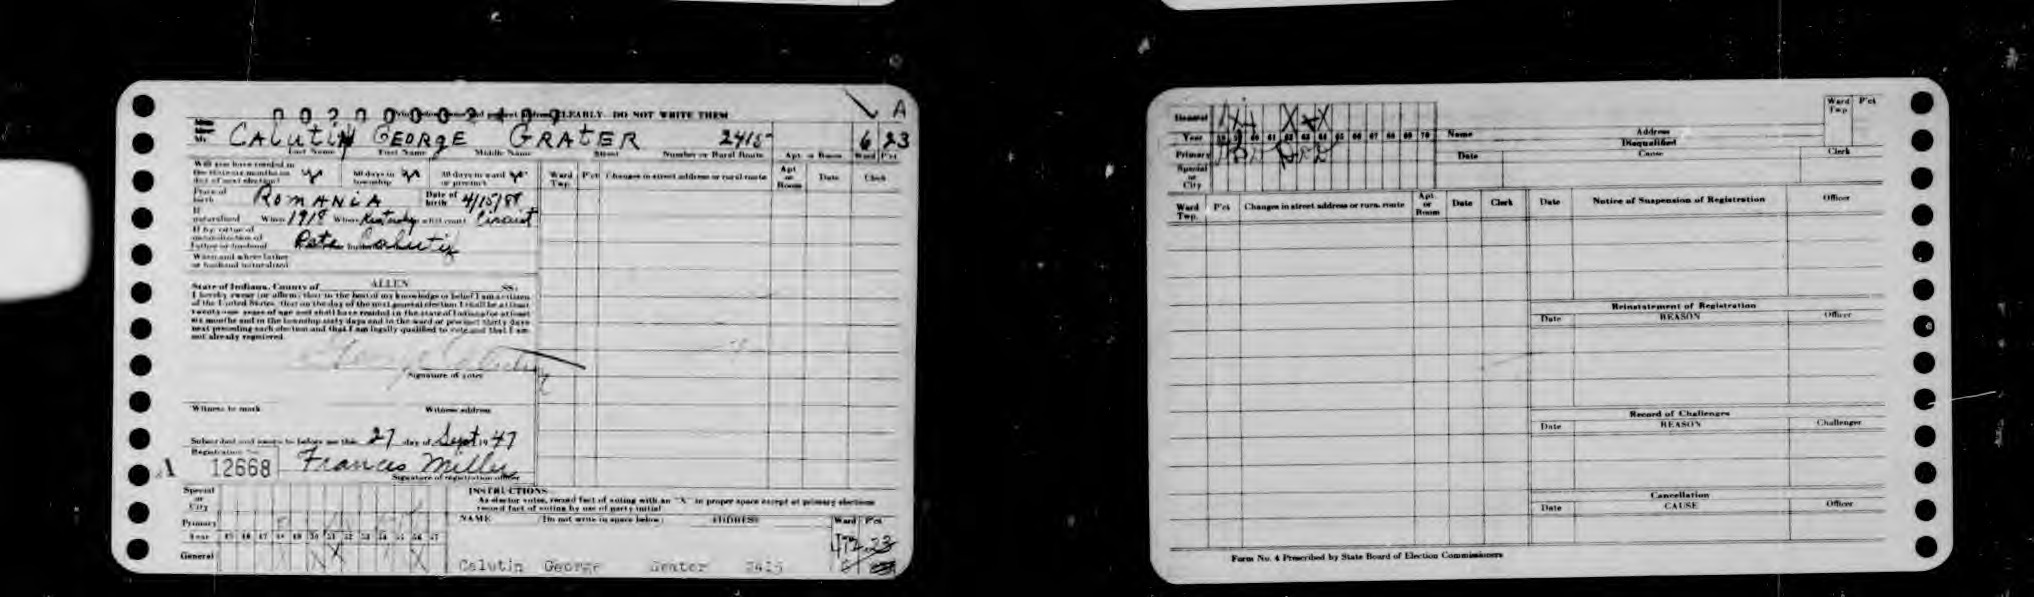 CLEARLY. DO NOT WRITE THEM
A
CALUTIN GEORGE GRATER 2415 6 23
Last Name First Name Middle Name Street Number or Rural Route Apt. or Room Ward P'ct
Will you have resided in the State six months on day of next election?
60 days in township
30 days in ward or precinct
State of birth ROMANIA Date of birth 4/15/88
If naturalized When 1918 Where Kentucky what court Circuit
If by virtue of naturalization of Father or husband Pete Calutin
When and where father or husband naturalized
State of Indiana, County of ALLEN SS:
I hereby swear (or affirm) that to the best of my knowledge or belief I am a citizen
of the United States, that on the day of the next general election I shall be at least
twenty-one years of age and shall have resided in the state of Indiana for at least
six months and in the township sixty days and in the ward or precinct thirty days
next preceding such election and that I am legally qualified to vote and that I am
not already registered.
George Calutin
Signature of voter
Witness to mark Witness address
Subscribed and sworn to before me this 27 day of Sept 1947
Registration No.
A 12668 Francis Miller
Signature of registration officer
Special or City
Primary
Year 45 46 47 48 49 50 51 52 53 54 55 56 57
General
Ward Twp. P'ct Changes in street address or rural route Apt. or Room Date Clerk
INSTRUCTIONS
As elector votes, record fact of voting with an "X" in proper space except at primary elections
record fact of voting by use of party initial
NAME (Do not write in space below) ADDRESS Ward P'ct
Calutin George 2415
General
Year 60 61 62 63 64 65 66 67 68 69 70
Primary
Special or City
Name Address Ward Twp. P'ct
Disqualified
Date Cause Clerk
Ward Twp. P'ct Changes in street address or rural route Apt. or Room Date Clerk
Date Notice of Suspension of Registration Officer
Reinstatement of Registration
Date REASON Officer
Record of Challenges
Date REASON Challenger
Cancellation
Date CAUSE Officer
Form No. 4 Prescribed by State Board of Election Commissioners